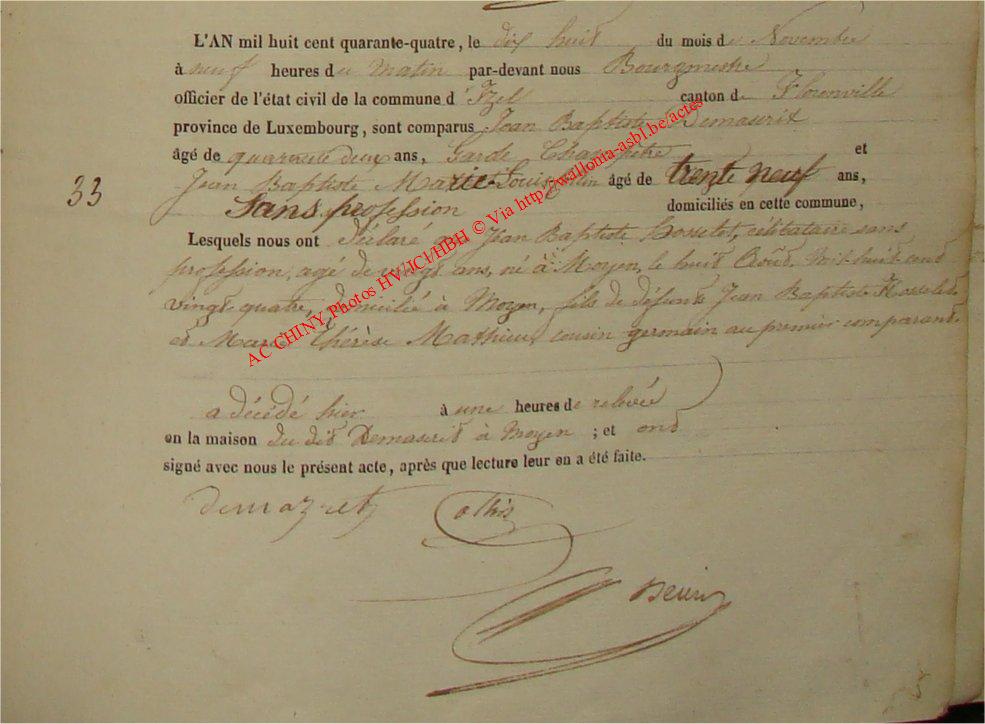 L'AN mil huit cent quarante-quatre, le dix huit du mois de Novembre
à neuf heures du matin par-devant nous Bourgmestre
officier de l'état civil de la commune d'Izel canton de Florenville
province de Luxembourg, sont comparus Jean Baptiste Demasrit
âgé de quarante deux ans, Garde Champêtre et
33
Jean Baptiste âgé de trente neuf ans,
Sans profession domiciliés en cette commune,
Lesquels nous ont déclaré que Jean Baptiste Hosselet, célibataire sans
profession, agé de vingt ans, né à Moyen, le huit Août mil huit cent
vingt quatre, domicilié à Moyen, fils de défunts Jean Baptiste Hosselet
et Marie Thérèse Mathieu, cousin germain au premier comparant
a décédé hier à une heures de relevée
en la maison du dit Demasrit à Moyen ; et ont
signé avec nous le présent acte, après que lecture leur en a été faite.
demazret
AC CHINY Photos HV/JCl/HBH © Via http://wallonia-asbl.be/actes